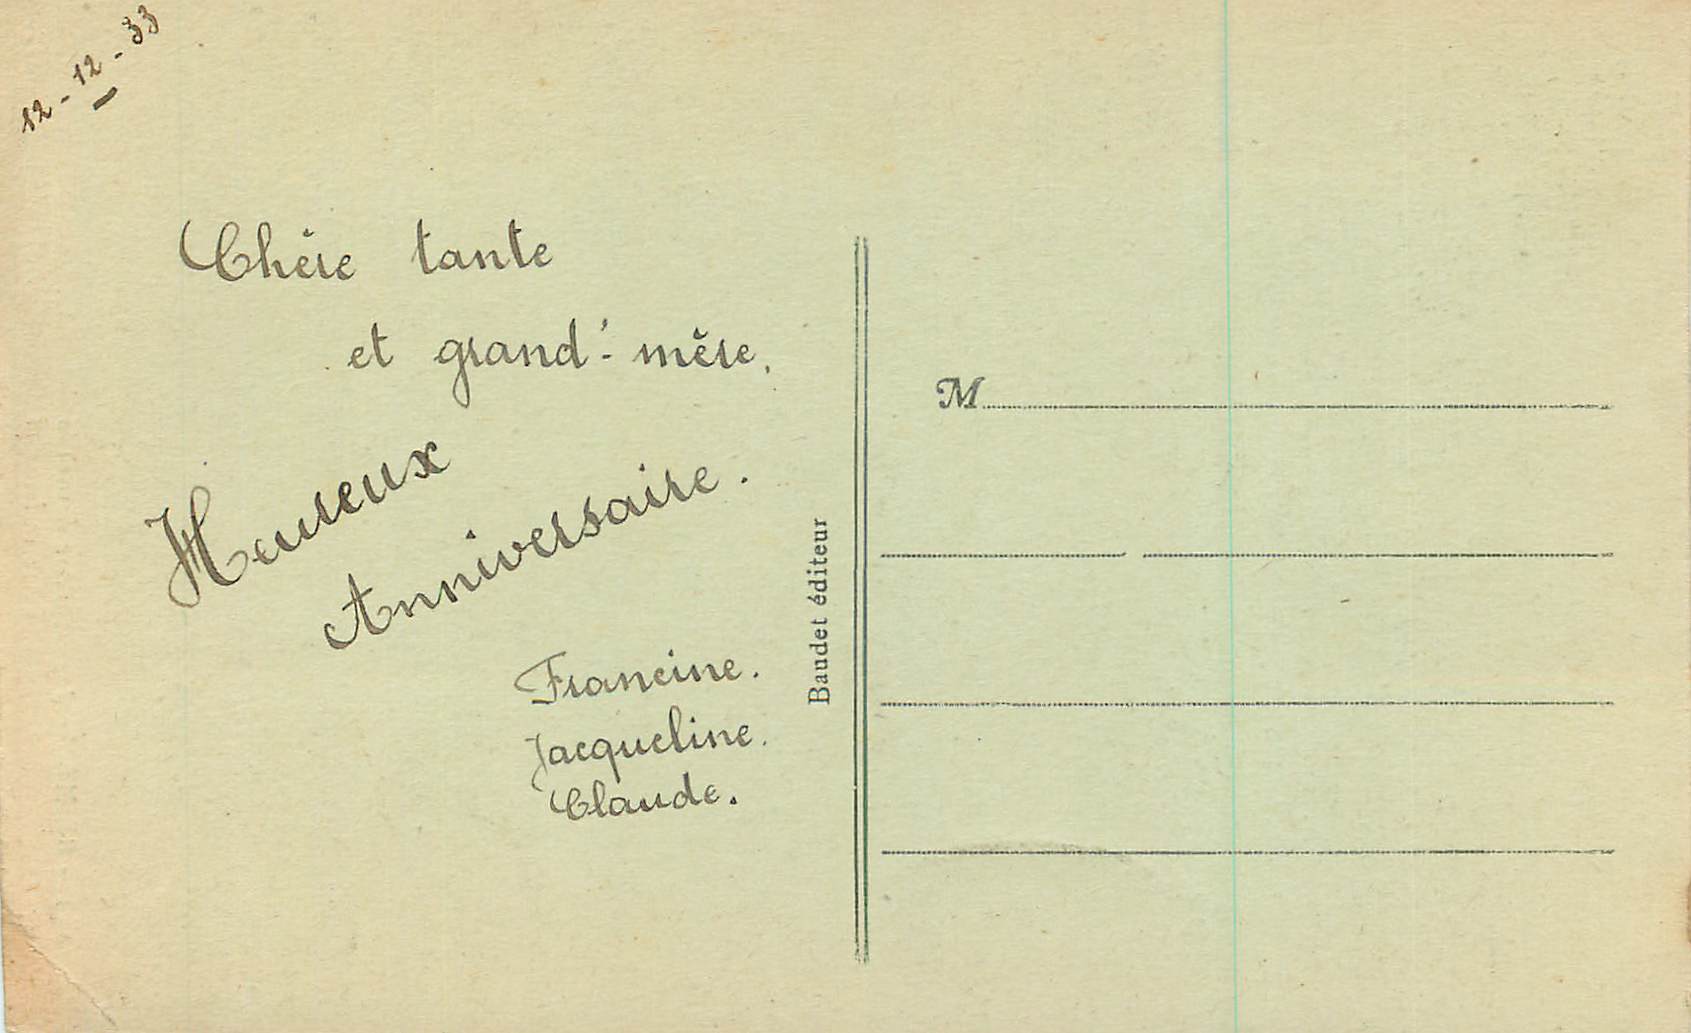 12-12-33
Chère tante
et grand'-mère,
Heureux
Anniversaire.
Francine.
Jacqueline.
Claude.
Baudet éditeur
M